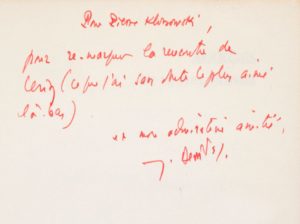 Pour Pierre Klossowski,
pour re-marquer la rencontre de
Cerisy (ce que j'ai sans doute le plus aimé
là-bas)
en mon admirative amitié,
J. Derrida